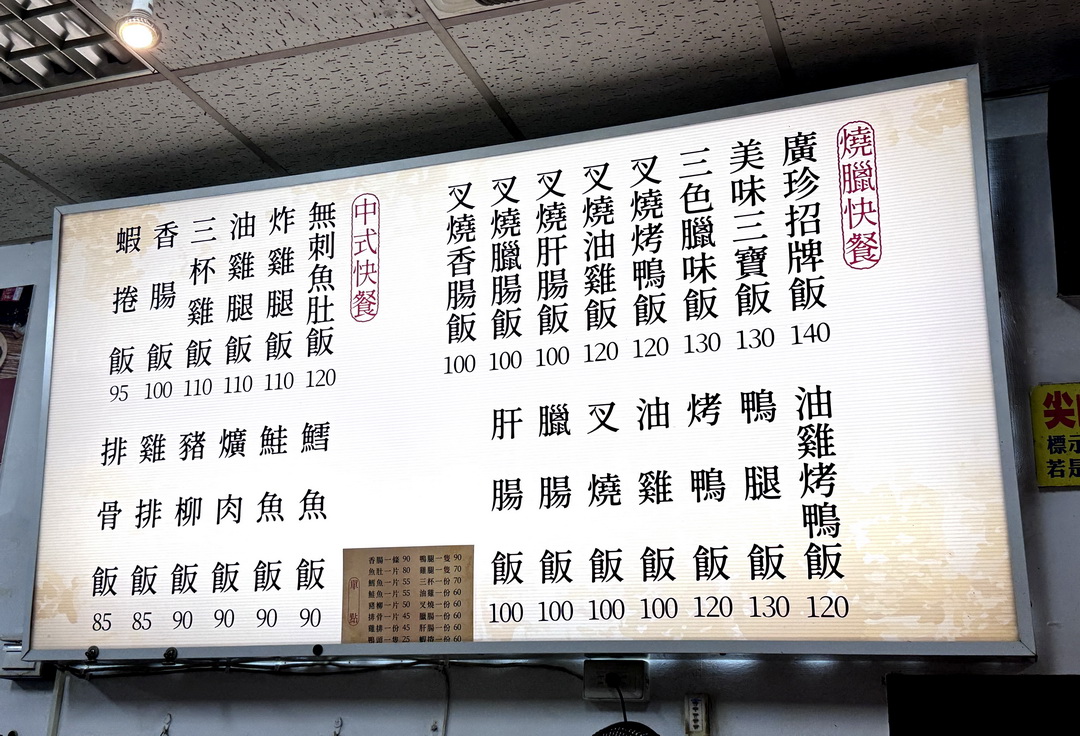 燒臘快餐
廣珍招牌飯 140
美味三寶飯 130
三色臘味飯 130
叉燒烤鴨飯 120
叉燒油雞飯 120
叉燒肝腸飯 100
叉燒臘腸飯 100
叉燒香腸飯 100
油雞烤鴨飯 120
鴨腿飯 130
烤鴨飯 120
油雞飯 100
叉燒飯 100
臘腸飯 100
肝腸飯 100
中式快餐
無刺魚肚飯 120
炸雞腿飯 110
油雞腿飯 110
三杯雞飯 110
香腸飯 100
蝦捲飯 95
鱈魚飯 90
鮭魚飯 90
爌肉飯 90
豬柳飯 90
雞排飯 85
排骨飯 85
單點
香腸一條 90
魚肚一片 80
鱈魚一片 55
鮭魚一片 55
豬柳一片 50
排骨一片 45
雞排一份 45
鴨頭一隻 25
鴨腿一隻 90
雞腿一隻 70
三杯一份 70
油雞一份 60
叉燒一份 60
臘腸一份 60
肝腸一份 60
蝦捲一份 60
尖
標示
若是